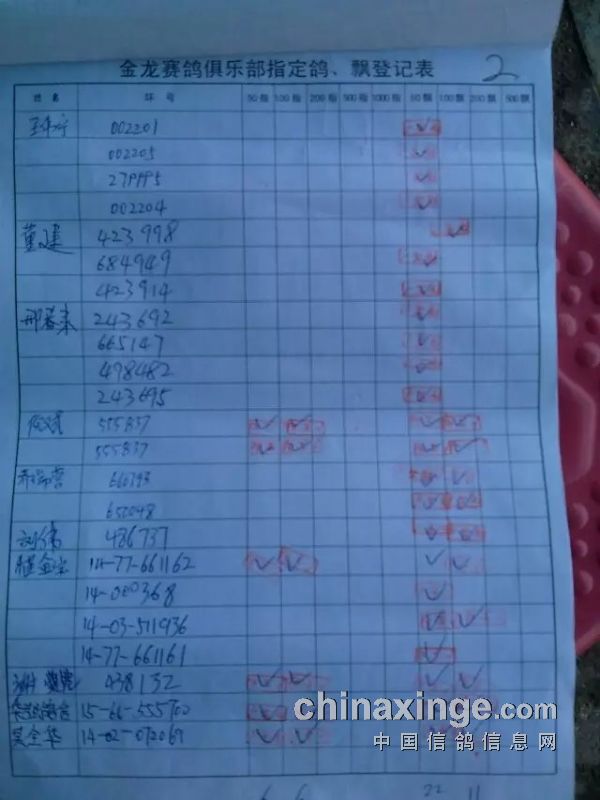 金龙赛鸽俱乐部指定鸽、飘登记表 2
姓名 环号 50指 100指 200指 500指 1000指 50飘 100飘 200飘 500飘
002201 ✓
002205 ✓
279995 ✓
002204 ✓
董建 423998 ✓
684949 ✓
423914 ✓
243692 ✓
665147 ✓
498482 ✓
243695 ✓
555837 ✓ ✓ ✓ ✓
555837 ✓ ✓ ✓ ✓
660793 ✓ ✓
650048 ✓ ✓
刘伟 486737 ✓ ✓
14-77-661162 ✓ ✓ ✓ ✓
14-000368 ✓
14-03-511936 ✓ ✓
14-77-661161 ✓
438132 ✓ ✓ ✓ ✓
15-66-555700 ✓
吴全华 14-02-072069 ✓ ✓ ✓ ✓
6 6 22 11
chinaxinge.com
中国信鸽信息网